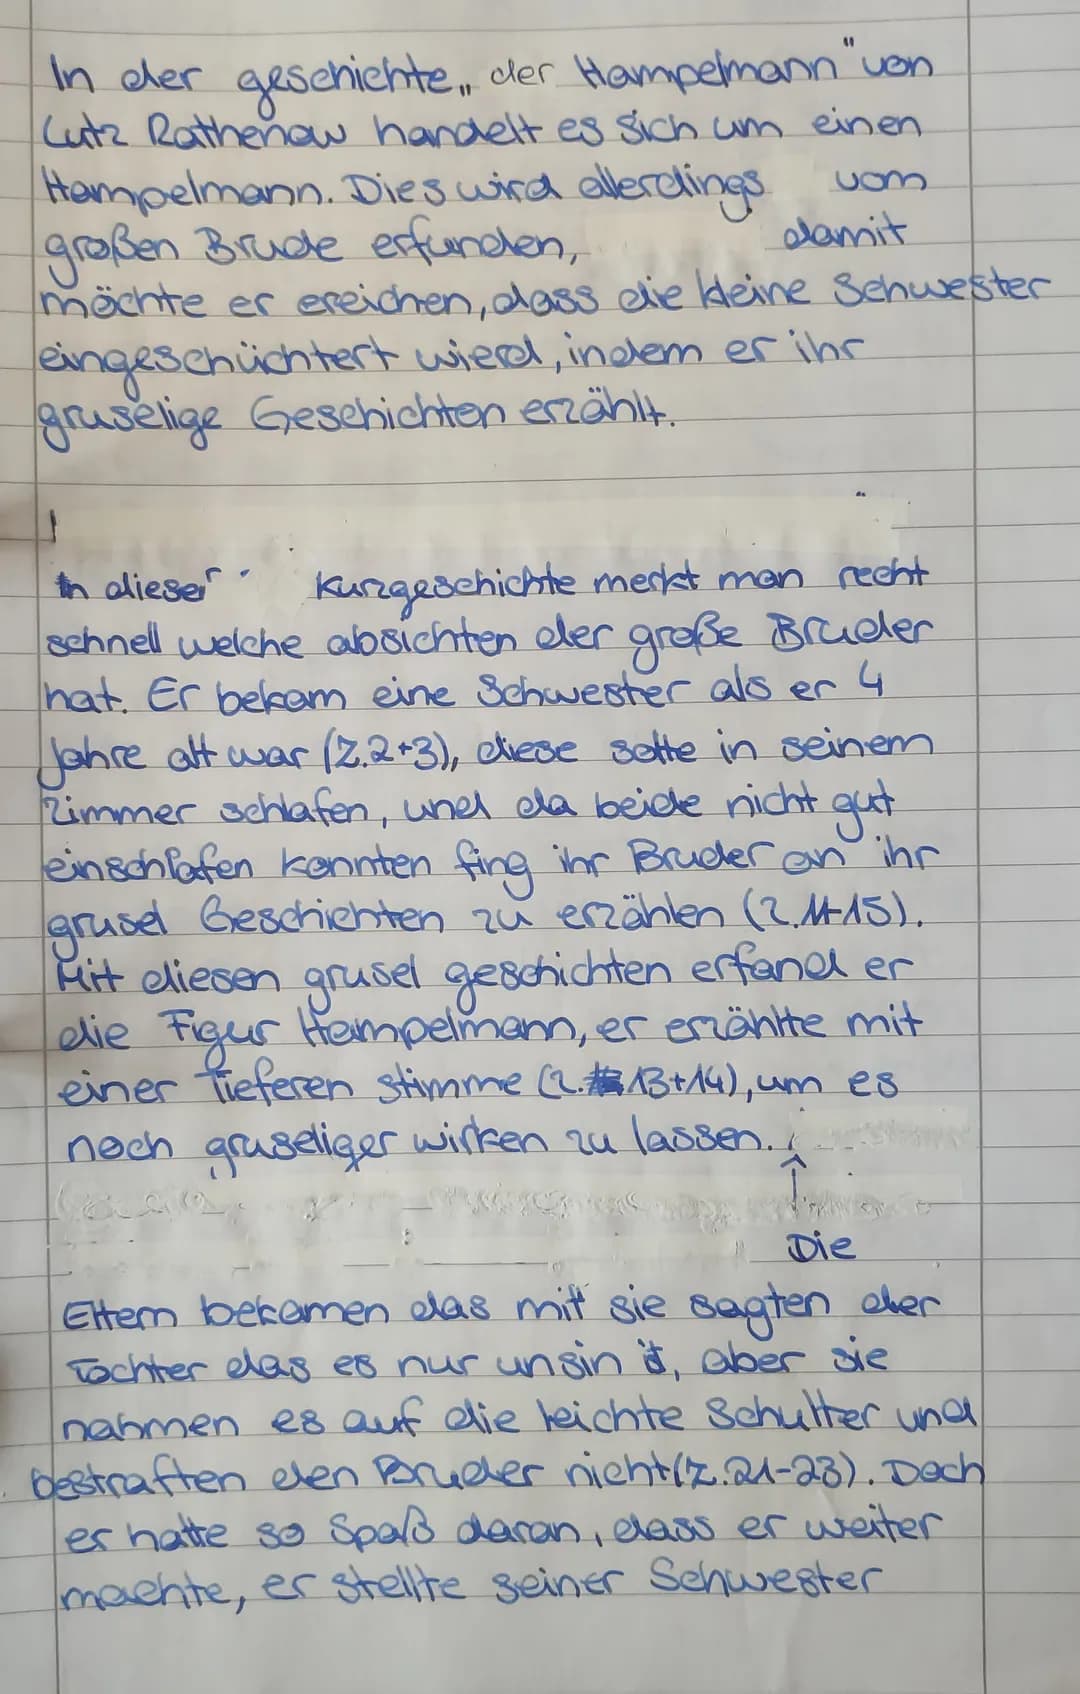 In der geschichte „der Hampelmann" von
Lutz Rathenow handelt es sich um einen
Hampelmann. Dies wird allerdings vom
großen Brude erfunden,
damit
möchte er ereichen, dass die kleine Schwester
eingeschüchtert wierd, indem er ihr
gruselige Geschichten erzählt.
In dieser Kurzgeschichte merkt man recht
schnell welche absichten der große Bruder
hat. Er bekam eine Schwester als er 4
Jahre alt war (Z.2+3), diese sollte in seinem
Zimmer schlafen, und da beide nicht gut
einschlafen konnten fing ihr Bruder an ihr
grusel Geschichten zu erzählen (Z.11-15).
Mit diesen grusel geschichten erfand er
die Figur Hampelmann, er erzählte mit
einer tieferen stimme (Z. 13+14), um es
noch gruseliger wirken zu lassen.
Die
Eltern bekamen das mit sie sagten der
Tochter das es nur unsin ist, aber sie
nahmen es auf die leichte Schulter und
bestraften den Bruder nicht (Z.21-23). Doch
er hatte so Spaß daran, dass er weiter
machte, er stellte seiner Schwester